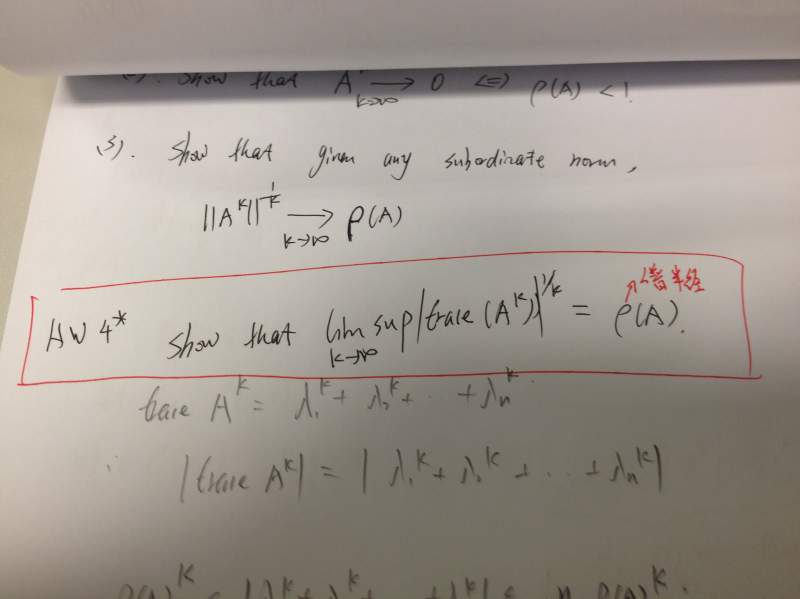 (2). Show that A^k → 0 <=> ρ(A) < 1
k→∞
(3). Show that given any subordinate norm,
||A^k||^{1/k} → ρ(A)
k→∞
谱半径
HW 4* Show that lim sup |trace (A^k)|^{1/k} = ρ(A).
k→∞
trace A^k = λ₁^k + λ₂^k + ·· + λn^k
∴ |trace A^k| = | λ₁^k + λ₂^k + ·· + λn^k |